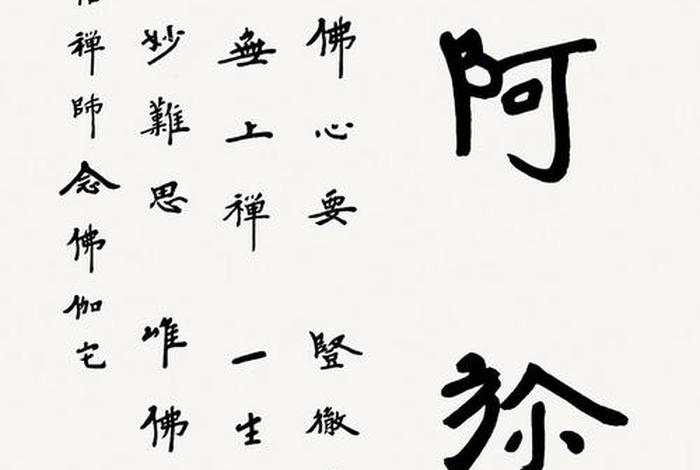 阿弥
佛心要 豎徹
無上禅 一生
妙難思 唯佛
禅師念佛伽它